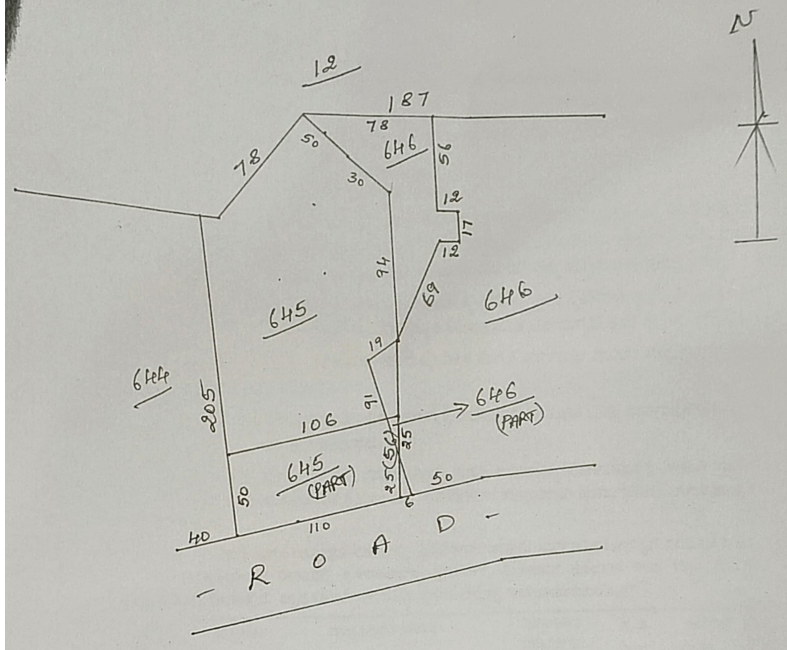 N
12
187
78
78
50
646
56
30
12
17
12
94
69
645
646
19
644
205
91
106
646
(PART)
25
25(50)
645
(PART)
50
50
6
40
110
- R O A D -